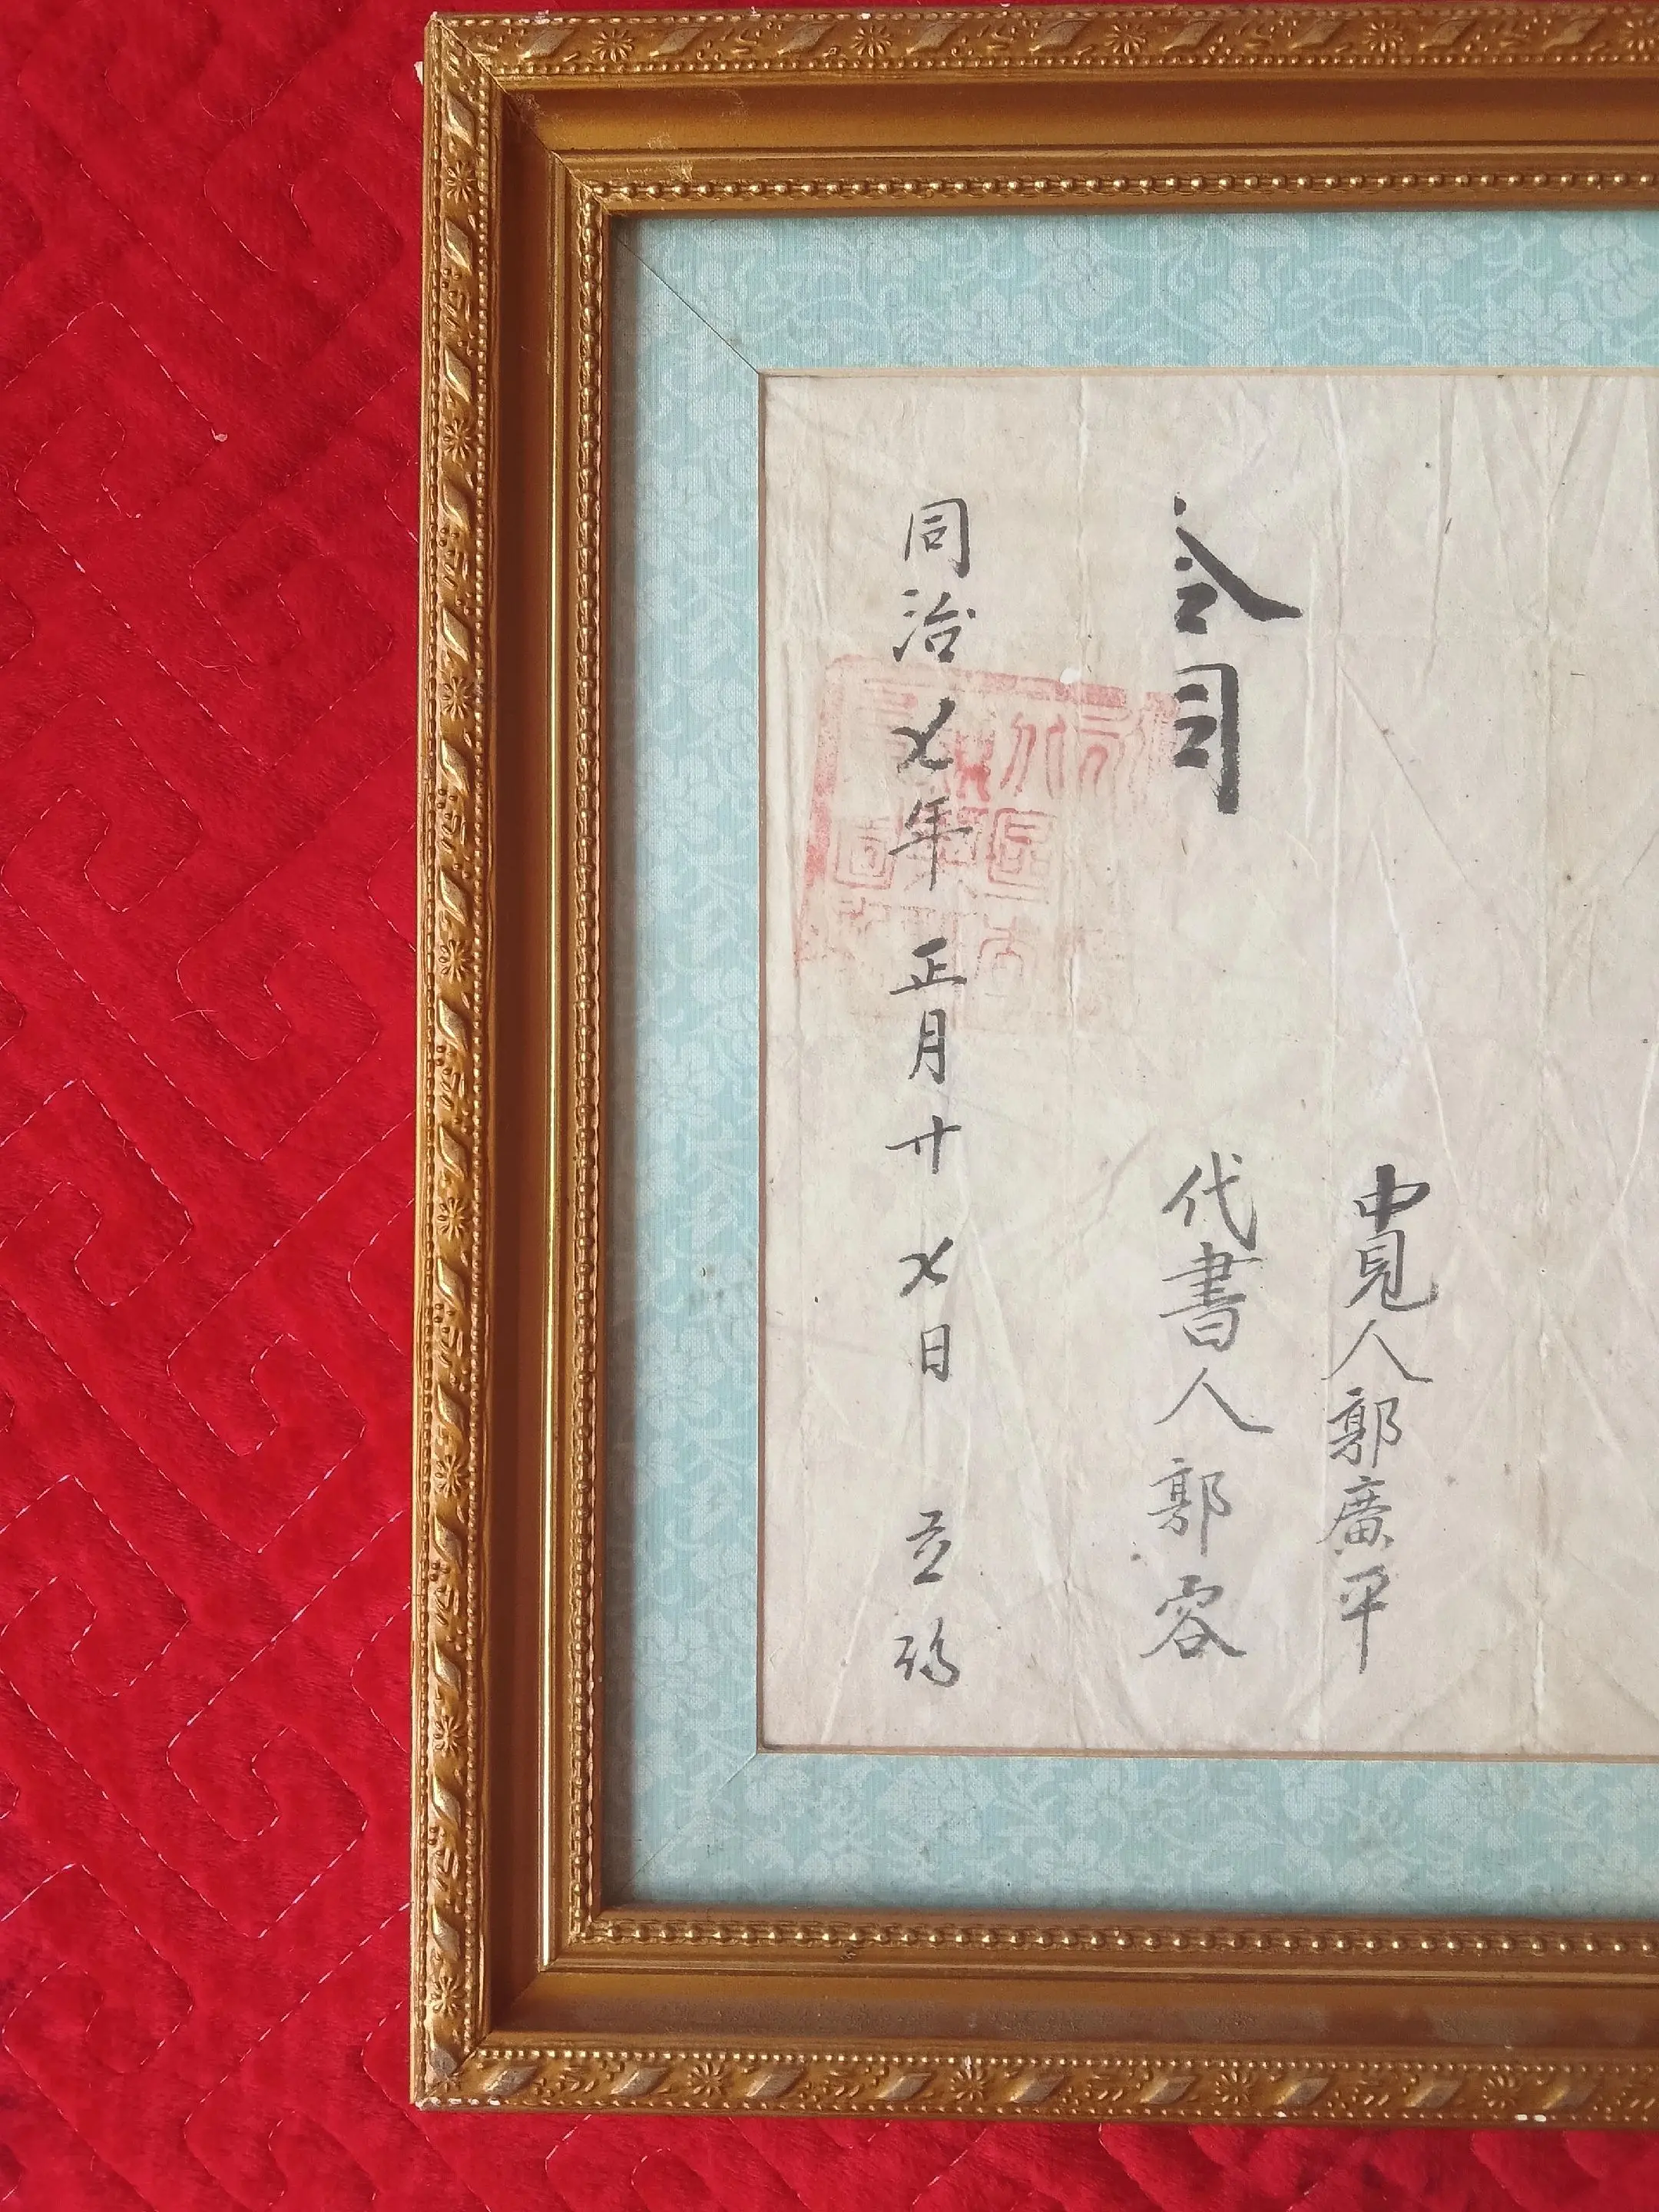 中見人郭廣平
合同
代書人郭容
同治七年正月廿七日 立